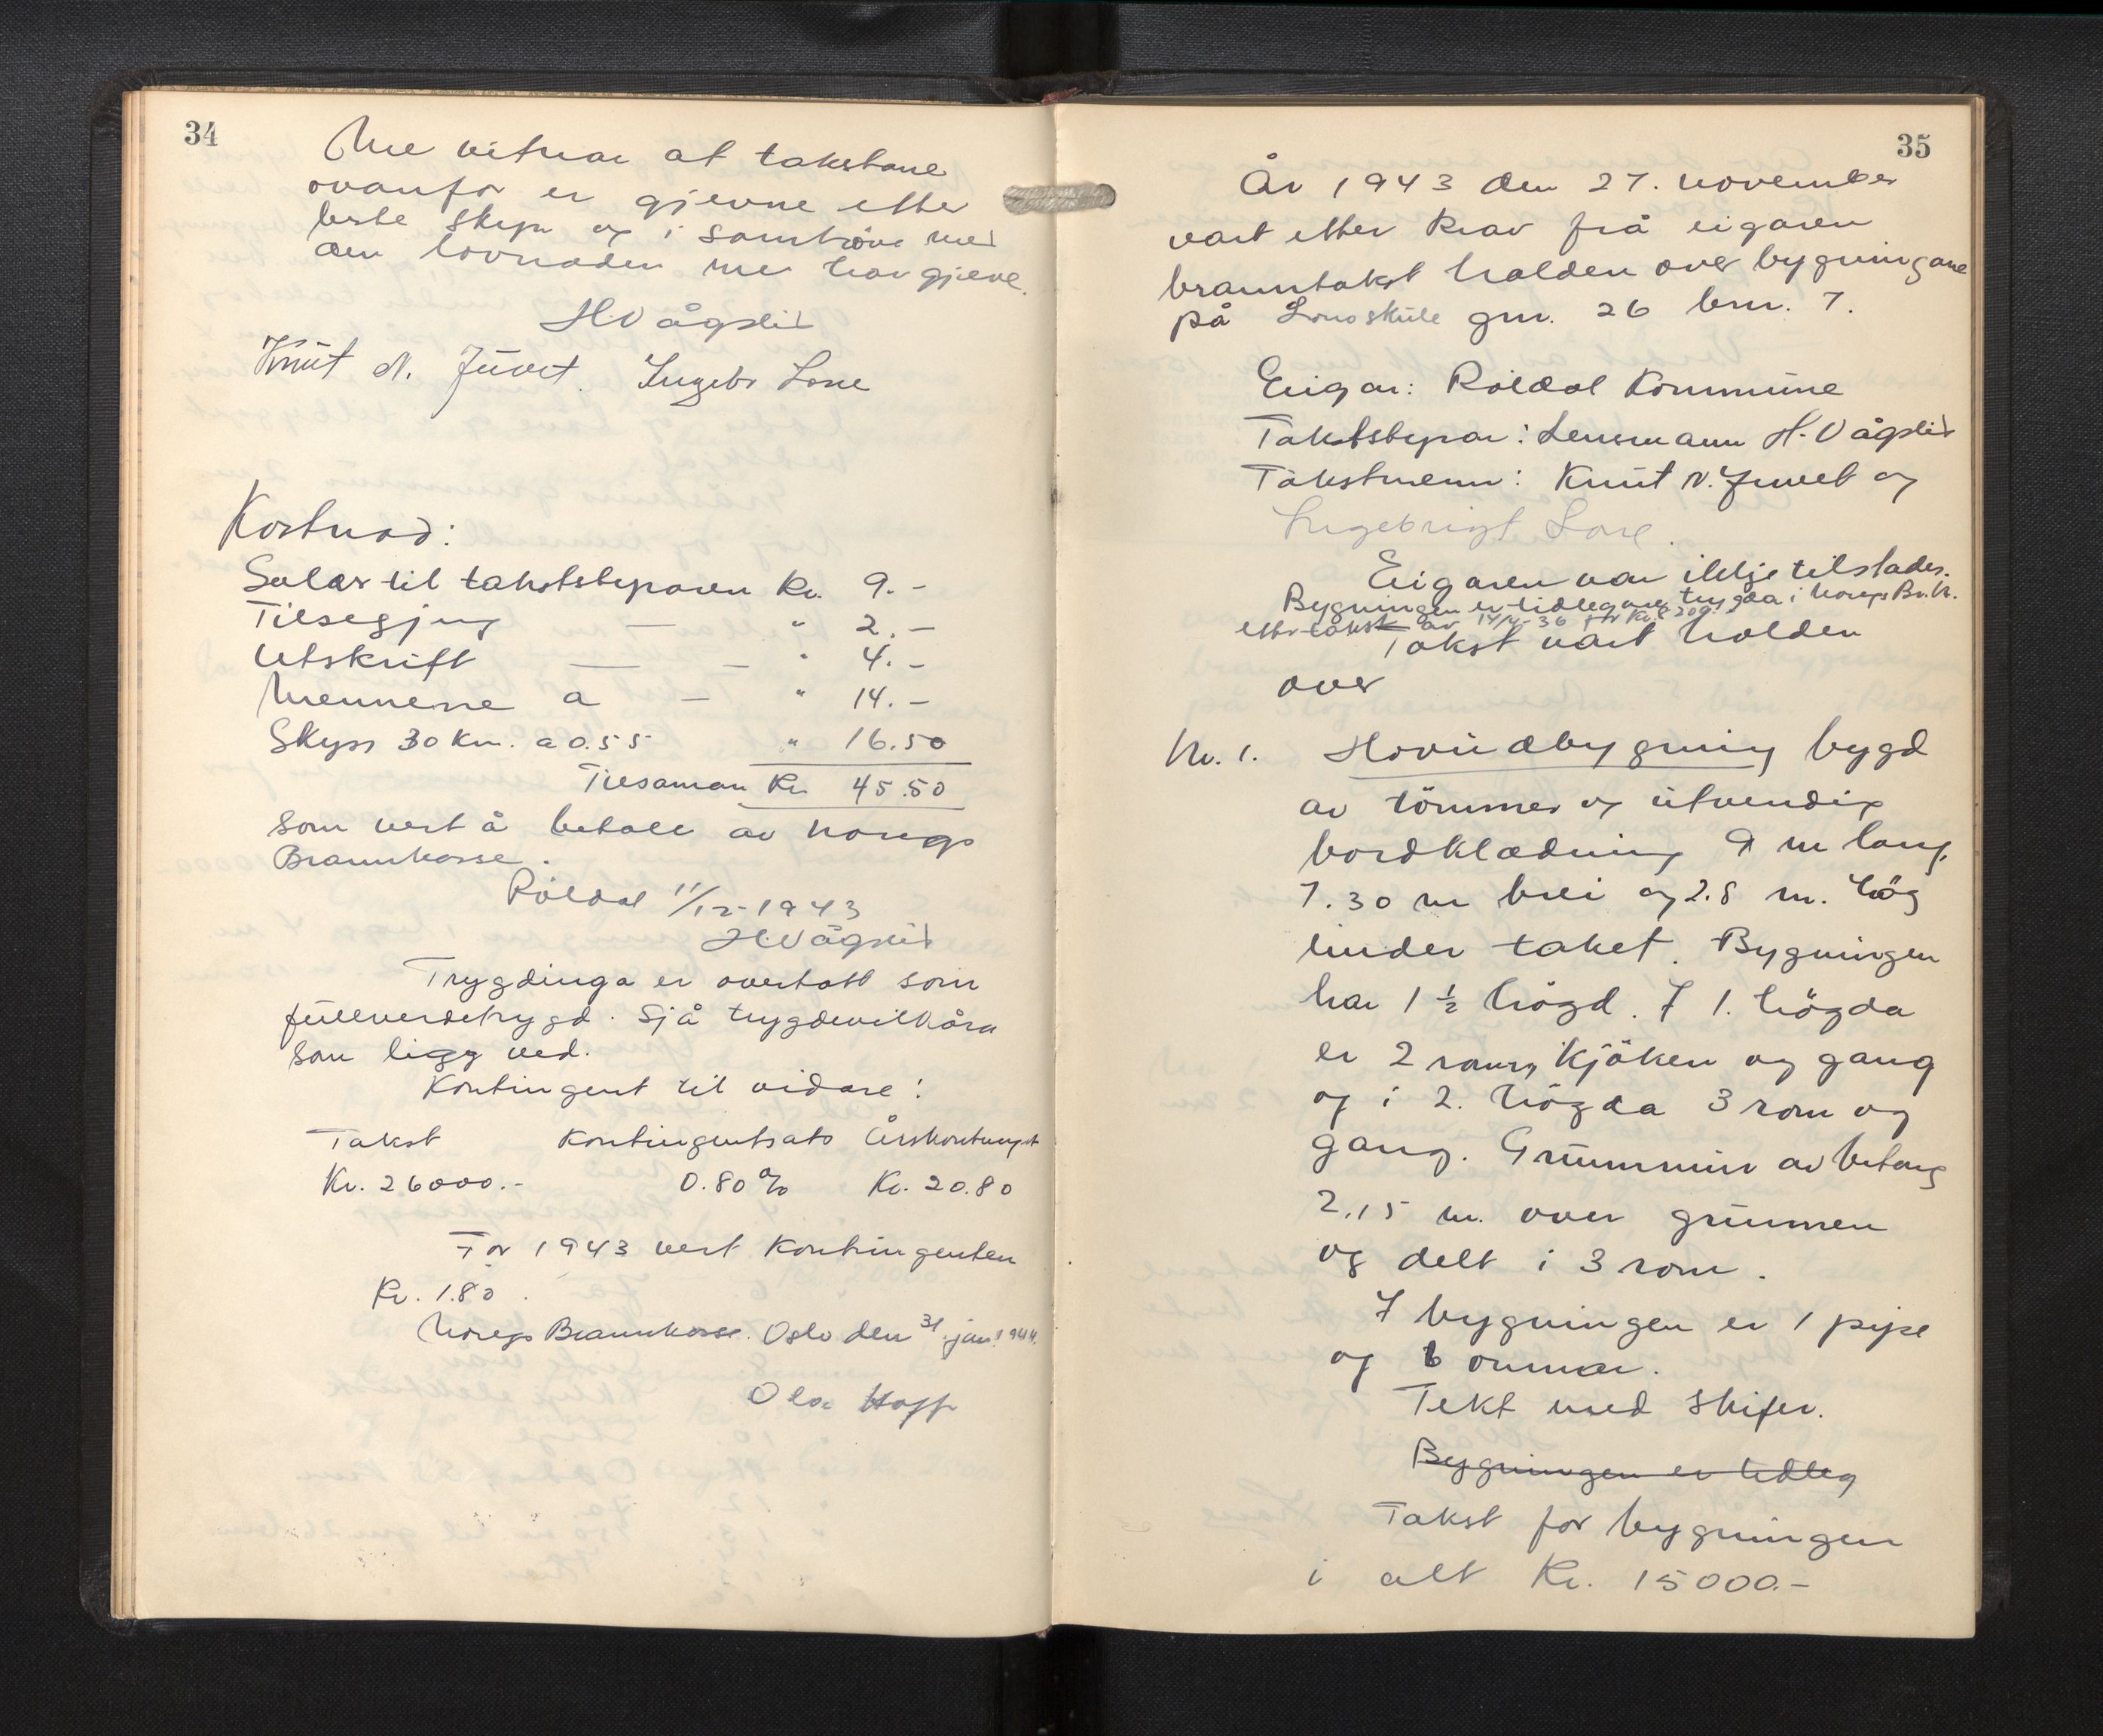 34
Me vitnar at takstane
ovanfor er gjevne etter
beste skyn og i samhøve med
den lovnaden me har gjeve.
H. Vågslid
Knut N. Juvet. Ingebr Lone
Kostnad:
Salær til takststyraren Kr. 9.-
Tilsegjing — " 2.-
Utskrift — — " 4.-
Mennene a — " 14.-
Skyss 30 km. a 0.55 " 16.50
Tilsaman Kr 45.50
som vert å betale av Noregs
Brannkasse.
Röldal 11/12-1943
H. Vågslid
Trygdinga er overtatt som
fullverdetrygd. Sjå trygdevilkåra
som ligg ved.
Kontingent til vidare:
Takst Kontingentsats Årskontingent
Kr. 26000.- 0.80 ‰ Kr. 20.80
For 1943 vert kontingenten
Kr. 1.80.
Noregs Brannkasse. Oslo den 31. jan. 1944.
Ola Hoff
35
År 1943 den 27. november
vart etter krav frå eigaren
branntakst halden over bygningane
på Lone skule gnr. 26 bnr. 7.
Eigar: Röldal Kommune
Takststyrar: Lensmann H. Vågslid
Takstmenn: Knut N. Juvet og
Ingebrigt Lone.
Eigaren var ikkje tilstades.
Bygningen er tidlegare trygda i Noregs Br.k.
etter takst av 14/4-36 for Kr.
Takst vart halden
over
Nr. 1. Hovudbygning bygd
av tömmer og utvendig
bordklædning 9 m lang,
7.30 m brei og 2.8 m. hög
under taket. Bygningen
har 1 ½ högd. I 1. högda
er 2 rom, kjöken og gang
og i 2. högda 3 rom og
gang. Grunnmur av betong
2.15 m. over grunnen
og delt i 3 rom.
I bygningen er 1 pipe
og 6 omnar.
Tekt med skifer.
Bygningen er tidleg
Takst for bygningen
i alt Kr. 15000.-